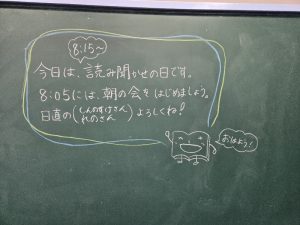 8:15〜
今日は、読み聞かせの日です。
8:05には、朝の会をはじめましょう。
日直の(しんのすけさん
れのさん)よろしくね!
おはよう!